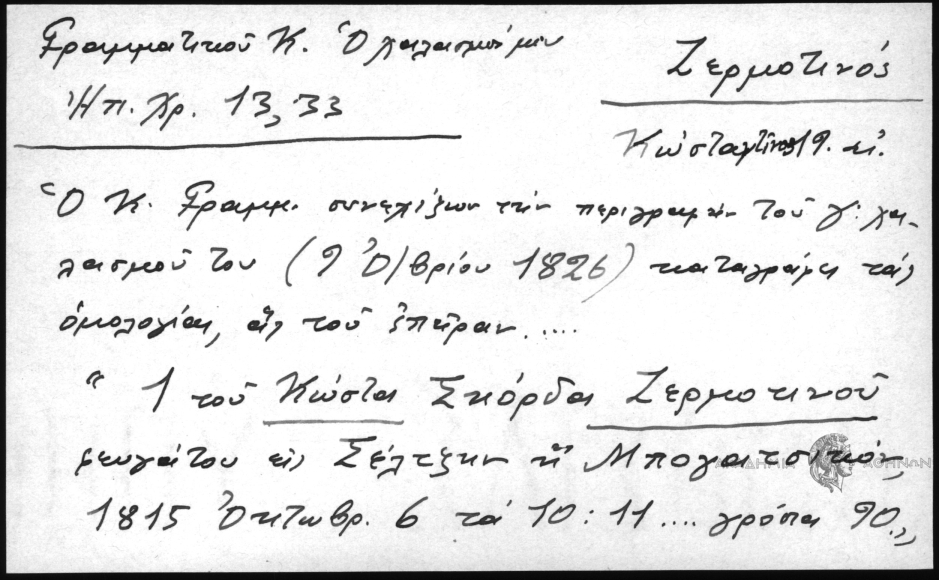 Γραμματικοῦ Κ. Ὁ χαλασμός μου
Ζερμοτινός
Ἠπ. Χρ. 13, 33
Κώστα
Ὁ Κ. Γραμμ. συνεχίζων τὴν περιγραφὴν τοῦ γ΄. χα-
λασμοῦ του (9 Ὀ)βρίου 1826) καταγράφει τάς
ὁμολογίας, ἃς τοῦ ἐπῆραν....
" 1 τοῦ Κώστα Σκόρδα Ζερμοτινοῦ
ζευγάτου εἰς Σέλτζην ἢ Μπογατσικόν,
1815 Ὀκτωβρ. 6 τά 10 : 11.... γρόσια 90.,,
ΑΚΑΔΗΜΙΑ ΑΘΗΝΩΝ